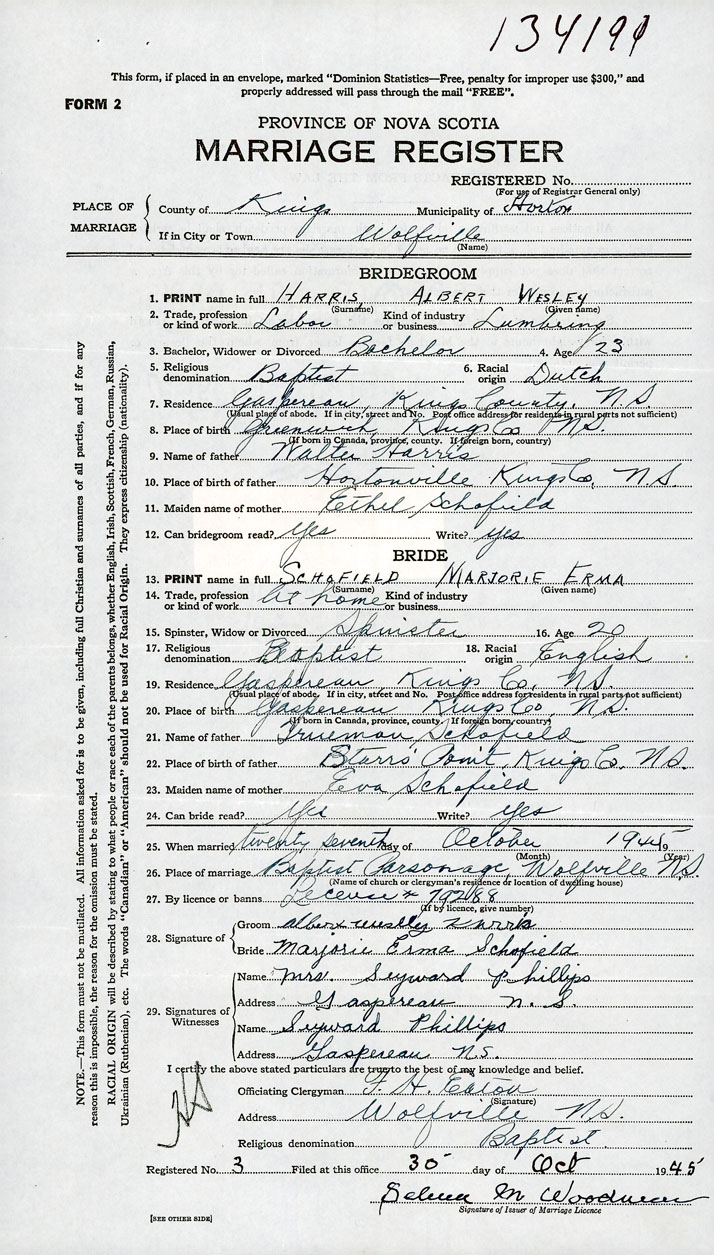 134191
This form, if placed in an envelope, marked "Dominion Statistics—Free, penalty for improper use $300," and
properly addressed will pass through the mail "FREE".
FORM 2
PROVINCE OF NOVA SCOTIA
MARRIAGE REGISTER
REGISTERED No.
(For use of Registrar General only)
PLACE OF MARRIAGE
County of Kings Municipality of Horton
If in City or Town Wolfville
(Name)
BRIDEGROOM
1. PRINT name in full HARRIS, ALBERT WESLEY
(Surname) (Given name)
2. Trade, profession or kind of work Labor Kind of industry or business Lumbering
3. Bachelor, Widower or Divorced Bachelor 4. Age 23
5. Religious denomination Baptist 6. Racial origin Dutch
7. Residence Gaspereau, Kings County, N.S.
(Usual place of abode. If in city, street and No. Post office address for residents in rural parts not sufficient)
8. Place of birth Greenwich, Kings Co N.S.
(If born in Canada, province, county. If foreign born, country)
9. Name of father Walter Harris
10. Place of birth of father Hortonville Kings Co, N.S.
11. Maiden name of mother Ethel Schofield
12. Can bridegroom read? Yes Write? yes
BRIDE
13. PRINT name in full SCHOFIELD MARJORIE ERMA
(Surname) (Given name)
14. Trade, profession or kind of work At home Kind of industry or business
15. Spinster, Widow or Divorced Spinster 16. Age 20
17. Religious denomination Baptist 18. Racial origin English
19. Residence Gaspereau, Kings Co, N.S.
(Usual place of abode. If in city, street and No. Post office address for residents in rural parts not sufficient)
20. Place of birth Gaspereau Kings Co N.S.
(If born in Canada, province, county. If foreign born, country)
21. Name of father Trueman Schofield
22. Place of birth of father Starrs Point, Kings Co. N.S.
23. Maiden name of mother Eva Schofield
24. Can bride read? Yes Write? yes
25. When married twenty seventh day of October 1945
(Month) (Year)
26. Place of marriage Baptist Parsonage, Wolfville N.S.
(Name of church or clergyman's residence or location of dwelling house)
27. By licence or banns License # 79288
(If by licence, give number)
28. Signature of
Groom
Bride Marjorie Erma Schofield
29. Signatures of Witnesses
Name Mrs. Seyward Phillips
Address Gaspereau N.S.
Name Seyward Phillips
Address Gaspereau N.S.
I certify the above stated particulars are true to the best of my knowledge and belief.
Officiating Clergyman F. H. Eaton
(Signature)
Address Wolfville N.S.
Religious denomination Baptist.
Registered No. 3 Filed at this office 30 day of Oct 1945
Selena M Woodman
Signature of Issuer of Marriage Licence
[SEE OTHER SIDE]
NOTE.—This form must not be mutilated. All information asked for is to be given, including full Christian and surnames of all parties, and if for any
reason this is impossible, the reason for the omission must be stated.
RACIAL ORIGIN will be described by stating to what people or race each of the parents belongs, whether English, Irish, Scottish, French, German, Russian,
Ukrainian (Ruthenian), etc. The words "Canadian" or "American" should not be used for Racial Origin. They express citizenship (nationality).